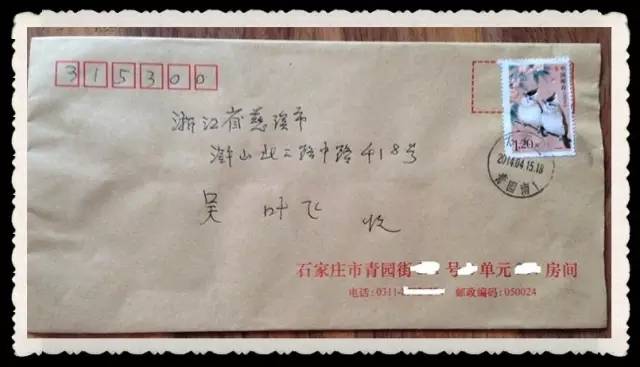 315300
浙江省慈溪市
浒山北二路中路418号
吴叶飞 收
1.20
2014.04.15.18
石家庄市青园街 号 单元 房间
电话:0311- 邮政编码:050024